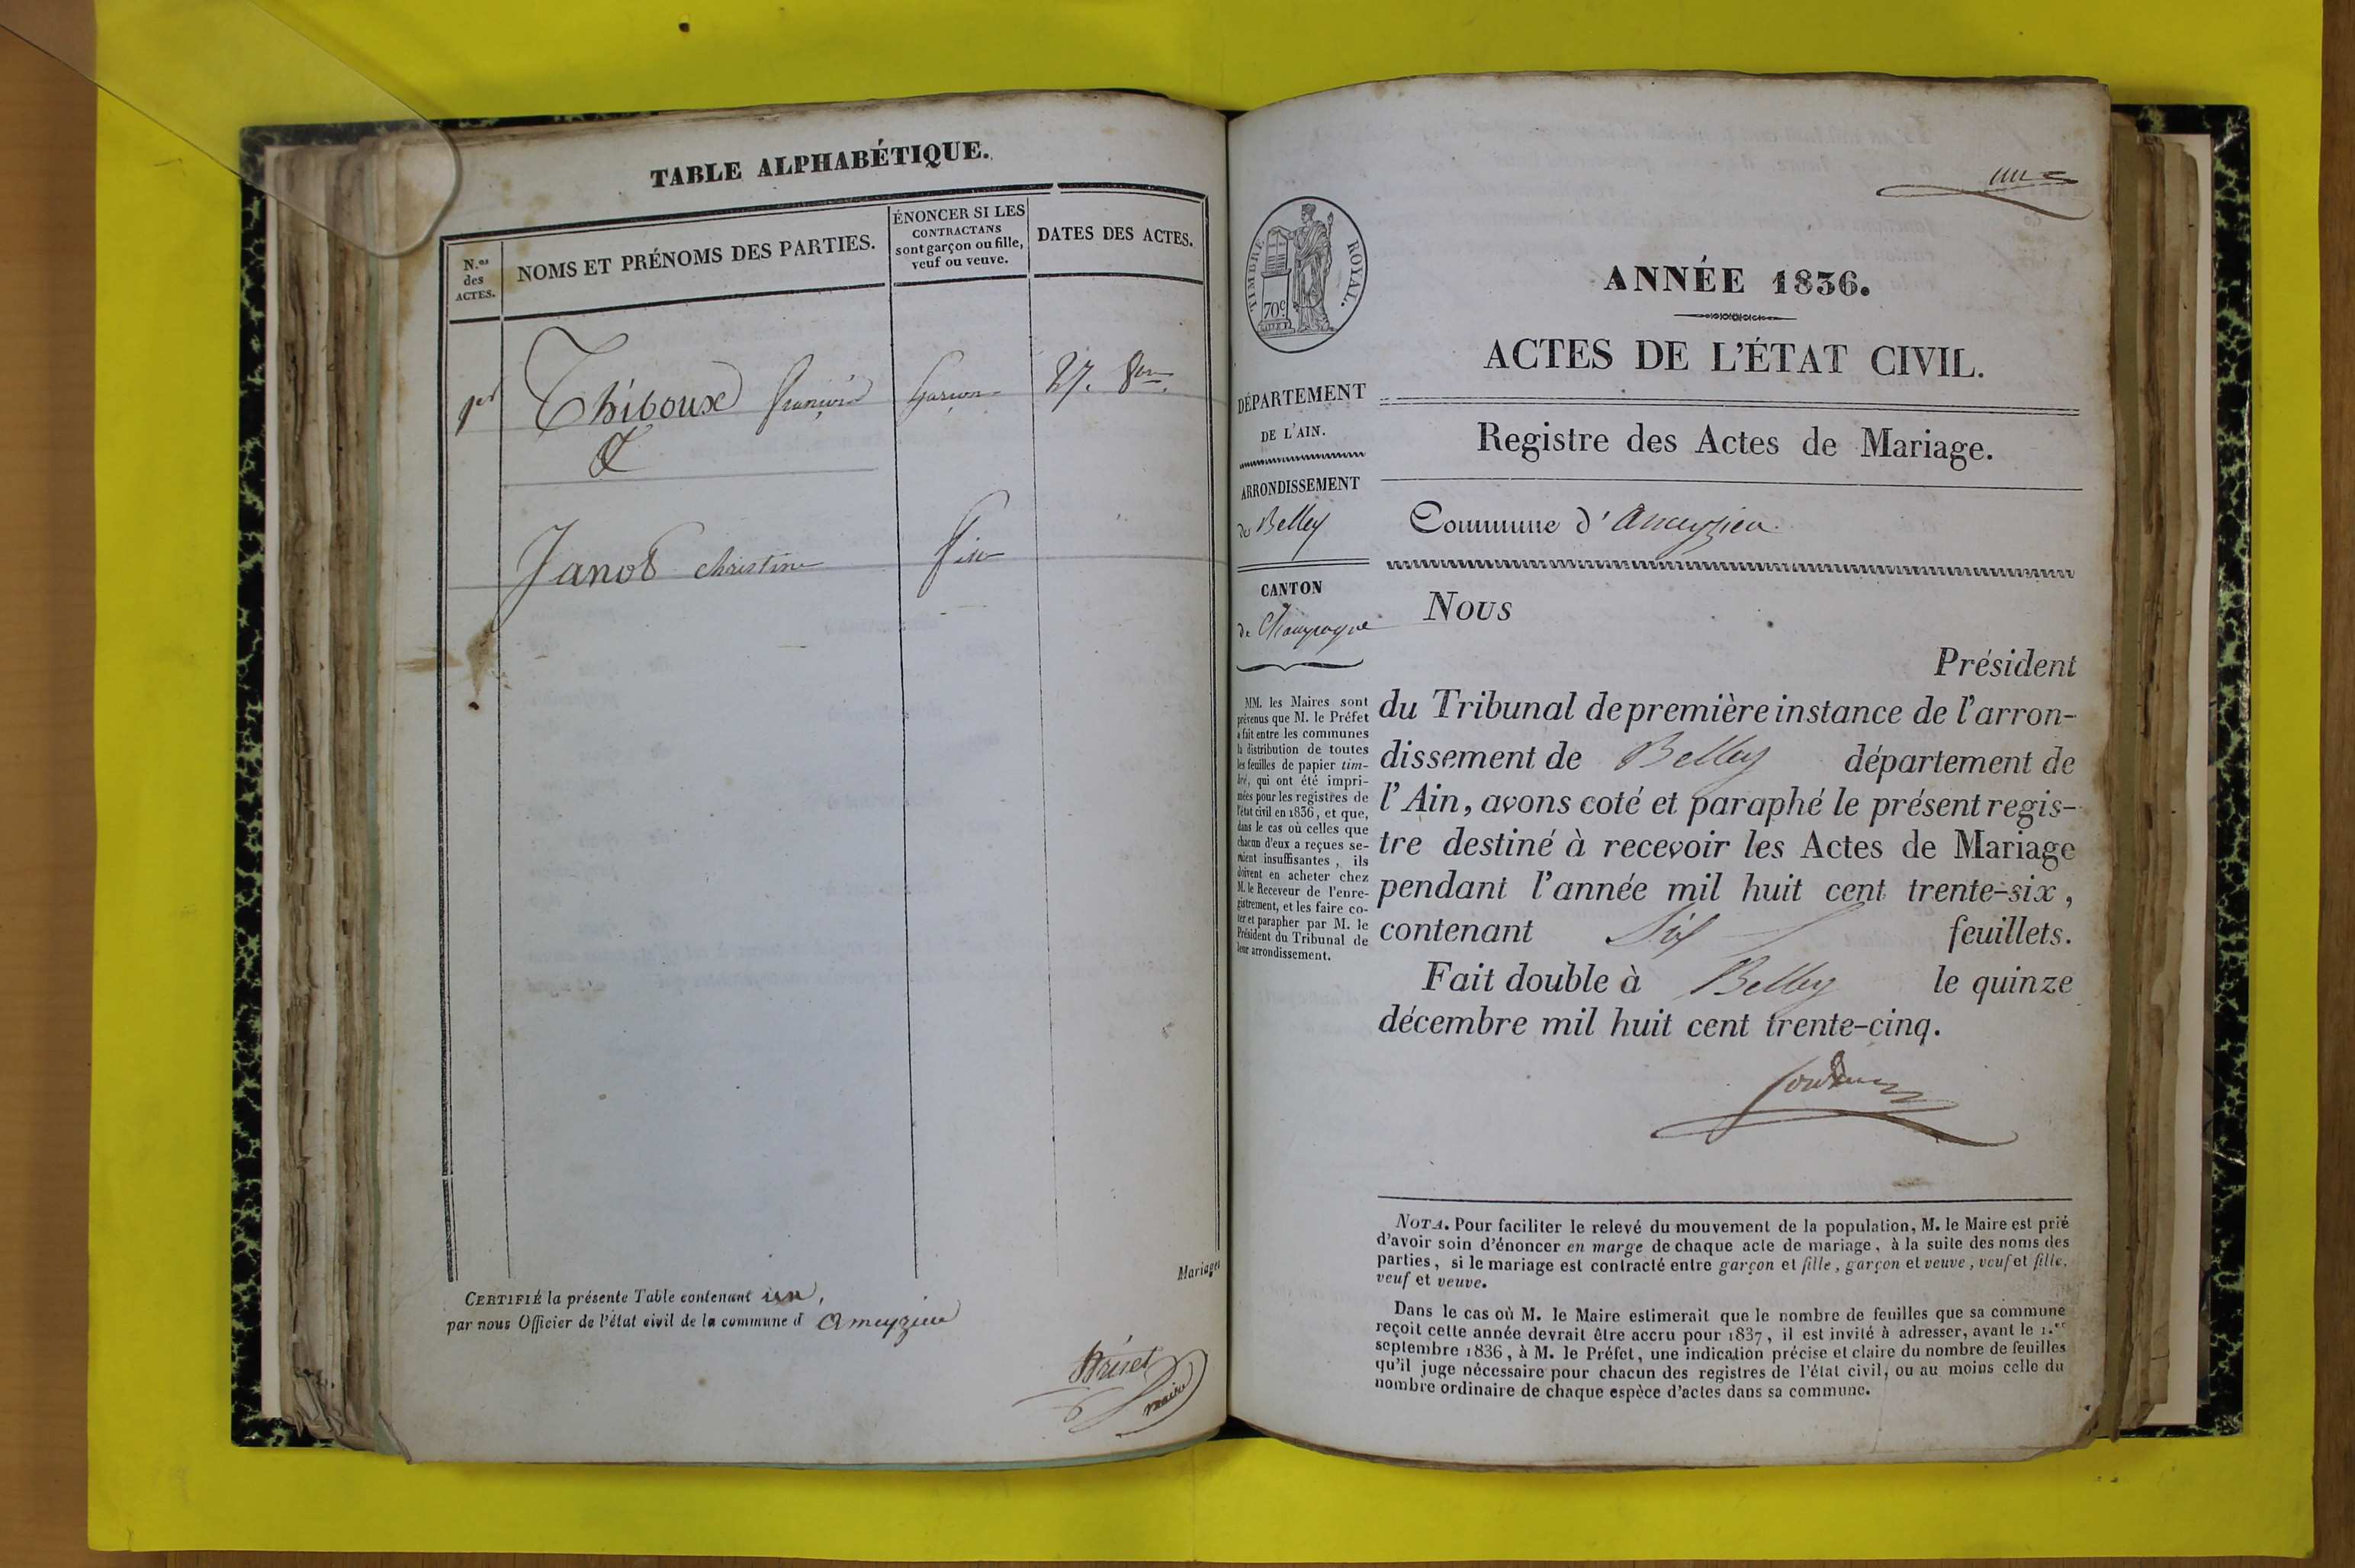 TABLE ALPHABÉTIQUE.
N.os des ACTES.
NOMS ET PRÉNOMS DES PARTIES.
ÉNONCER SI LES
CONTRACTANS
sont garçon ou fille,
veuf ou veuve.
DATES DES ACTES.
1er Thiboux françois garçon 27. 8bre
&
Janot christine fille
Mariages
CERTIFIÉ la présente Table contenant un,
par nous Officier de l'état civil de la commune d'Ameyzieu
maire
une
TIMBRE ROYAL.
70c
ANNÉE 1836.
ACTES DE L'ÉTAT CIVIL.
DÉPARTEMENT
DE L'AIN.
Registre des Actes de Mariage.
ARRONDISSEMENT
de Belley
Commune d'Ameyzieu
CANTON
de Champagne
MM. les Maires sont
prévenus que M. le Préfet
a fait entre les communes
la distribution de toutes
les feuilles de papier tim-
bré, qui ont été impri-
mées pour les registres de
l'état civil en 1836, et que,
dans le cas où celles que
chacun d'eux a reçues se-
raient insuffisantes, ils
doivent en acheter chez
M. le Receveur de l'enre-
gistrement, et les faire co-
ter et parapher par M. le
Président du Tribunal de
leur arrondissement.
Nous
Président
du Tribunal de première instance de l'arron-
dissement de Belley département de
l'Ain, avons coté et paraphé le présent regis-
tre destiné à recevoir les Actes de Mariage
pendant l'année mil huit cent trente-six,
contenant Six feuillets.
Fait double à Belley le quinze
décembre mil huit cent trente-cinq.
NOTA. Pour faciliter le relevé du mouvement de la population, M. le Maire est prié
d'avoir soin d'énoncer en marge de chaque acte de mariage, à la suite des noms des
parties, si le mariage est contracté entre garçon et fille, garçon et veuve, veuf et fille,
veuf et veuve.
Dans le cas où M. le Maire estimerait que le nombre de feuilles que sa commune
reçoit cette année devrait être accru pour 1837, il est invité à adresser, avant le 1.er
septembre 1836, à M. le Préfet, une indication précise et claire du nombre de feuilles
qu'il juge nécessaire pour chacun des registres de l'état civil, ou au moins celle du
nombre ordinaire de chaque espèce d'actes dans sa commune.